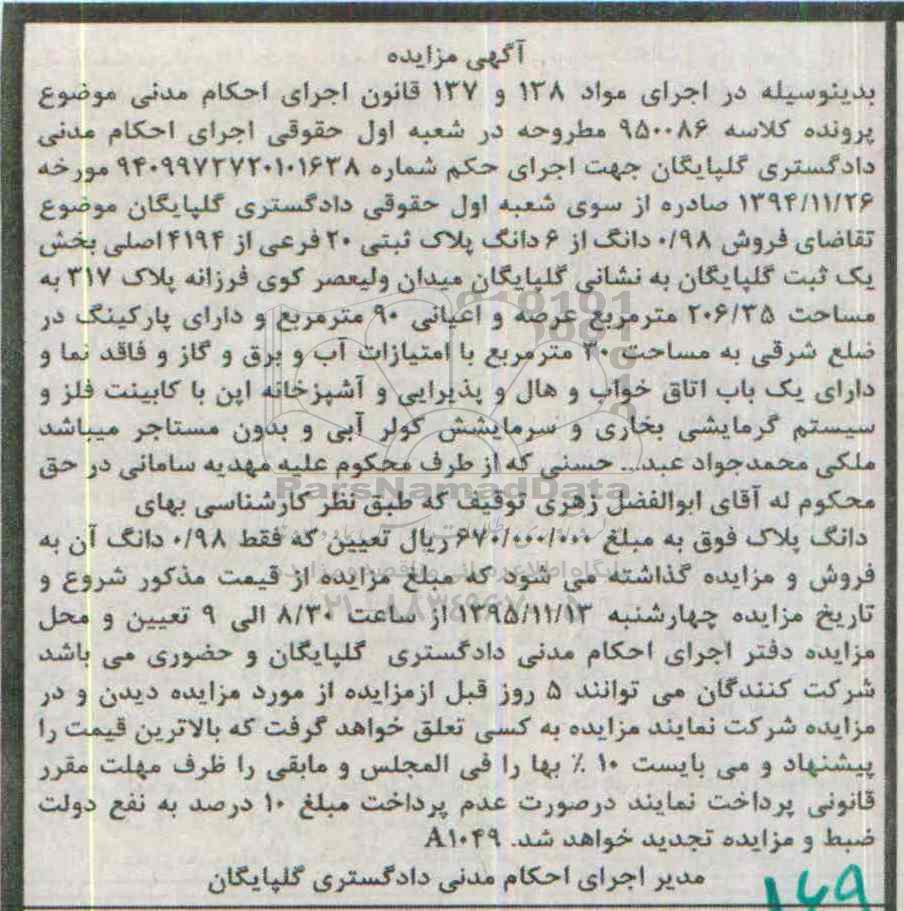 آگهی مزایده
بدینوسیله در اجرای مواد ۱۳۸ و ۱۳۷ قانون اجرای احکام مدنی موضوع
پرونده کلاسه ۹۵۰۰۸۶ مطروحه در شعبه اول حقوقی اجرای احکام مدنی
دادگستری گلپایگان جهت اجرای حکم شماره ۹۴۰۹۹۷۳۷۲۰۱۰۱۶۳۸ مورخه
۱۳۹۴/۱۱/۲۶ صادره از سوی شعبه اول حقوقی دادگستری گلپایگان موضوع
تقاضای فروش ۰/۹۸ دانگ از ۶ دانگ پلاک ثبتی ۲۰ فرعی از ۴۱۹۴ اصلی بخش
یک ثبت گلپایگان به نشانی گلپایگان میدان ولیعصر کوی فرزانه پلاک ۳۱۷ به
مساحت ۲۰۶/۳۵ مترمربع عرصه و اعیانی ۹۰ مترمربع و دارای پارکینگ در
ضلع شرقی به مساحت ۳۰ مترمربع با امتیازات آب و برق و گاز و فاقد نما و
دارای یک باب اتاق خواب و هال و پذیرایی و آشپزخانه اپن با کابینت فلز و
سیستم گرمایشی بخاری و سرمایشش کولر آبی و بدون مستاجر میباشد
ملکی محمدجواد عبد... حسنی که از طرف محکوم علیه مهدیه سامانی در حق
محکوم له آقای ابوالفضل زهری توقیف که طبق نظر کارشناسی بهای
دانگ پلاک فوق به مبلغ ۶۷۰/۰۰۰/۰۰۰ ریال تعیین که فقط ۰/۹۸ دانگ آن به
فروش و مزایده گذاشته می شود که مبلغ مزایده از قیمت مذکور شروع و
تاریخ مزایده چهارشنبه ۱۳۹۵/۱۱/۱۳ از ساعت ۸/۳۰ الی ۹ تعیین و محل
مزایده دفتر اجرای احکام مدنی دادگستری گلپایگان و حضوری می باشد
شرکت کنندگان می توانند ۵ روز قبل ازمزایده از مورد مزایده دیدن و در
مزایده شرکت نمایند مزایده به کسی تعلق خواهد گرفت که بالاترین قیمت را
پیشنهاد و می بایست ۱۰ ٪ بها را فی المجلس و مابقی را ظرف مهلت مقرر
قانونی پرداخت نمایند درصورت عدم پرداخت مبلغ ۱۰ درصد به نفع دولت
ضبط و مزایده تجدید خواهد شد. A۱۰۴۹
مدیر اجرای احکام مدنی دادگستری گلپایگان
ParsNamadData
۱۶۹